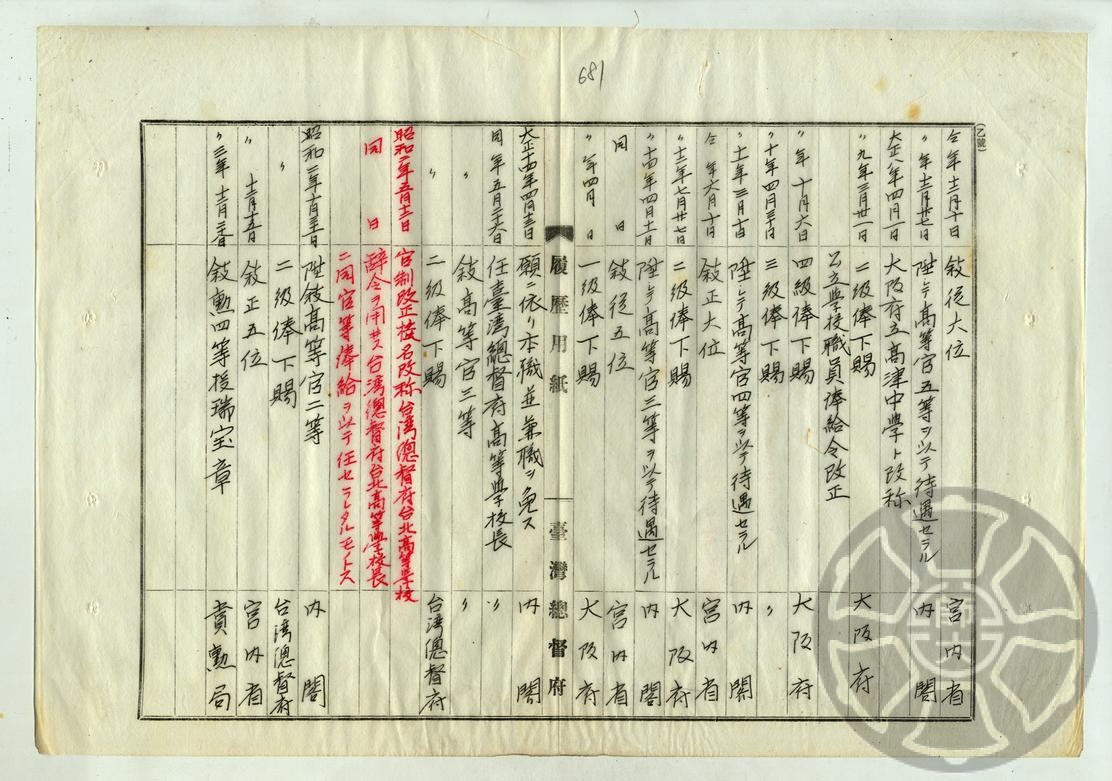 681
(乙號)
仝年十二月十日 敍從六位 宮内省
〃年十二月廿七日 陞シテ高等官五等ヲ以テ待遇セラル 内閣
大正八年四月一日 大阪府立高津中學ト改称
〃九年三月廿一日 二級俸下賜 大阪府
公立學校職員俸給令改正
〃年十月六日 四級俸下賜 大阪府
〃十年四月三十日 三級俸下賜 〃
〃十一年三月十日 陞シテ高等官四等ヲ以テ待遇セラル 内閣
仝年六月十日 敍正六位 宮内省
〃十二年七月廿七日 二級俸下賜 大阪府
〃十四年四月十一日 陞シテ高等官三等ヲ以テ待遇セラル 内閣
同日 敍從五位 宮内省
〃年四月〃日 一級俸下賜 大阪府
履歷用紙 臺灣總督府
大正十四年四月十三日 願ニ依リ本職並兼職ヲ免ス 内閣
同年五月二十六日 任臺湾總督府高等學校長 〃
〃 敍高等官三等 〃
〃 二級俸下賜 台湾總督府
昭和二年五月十三日 官制改正校名改称台湾總督府台北高等学校
同日 辭令ヲ用ヰス台湾總督府台北高等学校長
ニ同官等俸給ヲ以テ任セラレタルモノトス
昭和二年十月三十一日 陞敍高等官二等 内閣
〃 二級俸下賜 台湾總督府
〃 十二月十五日 敍正五位 宮内省
〃三年十二月二十八日 敍勲四等授瑞宝章 賞勲局